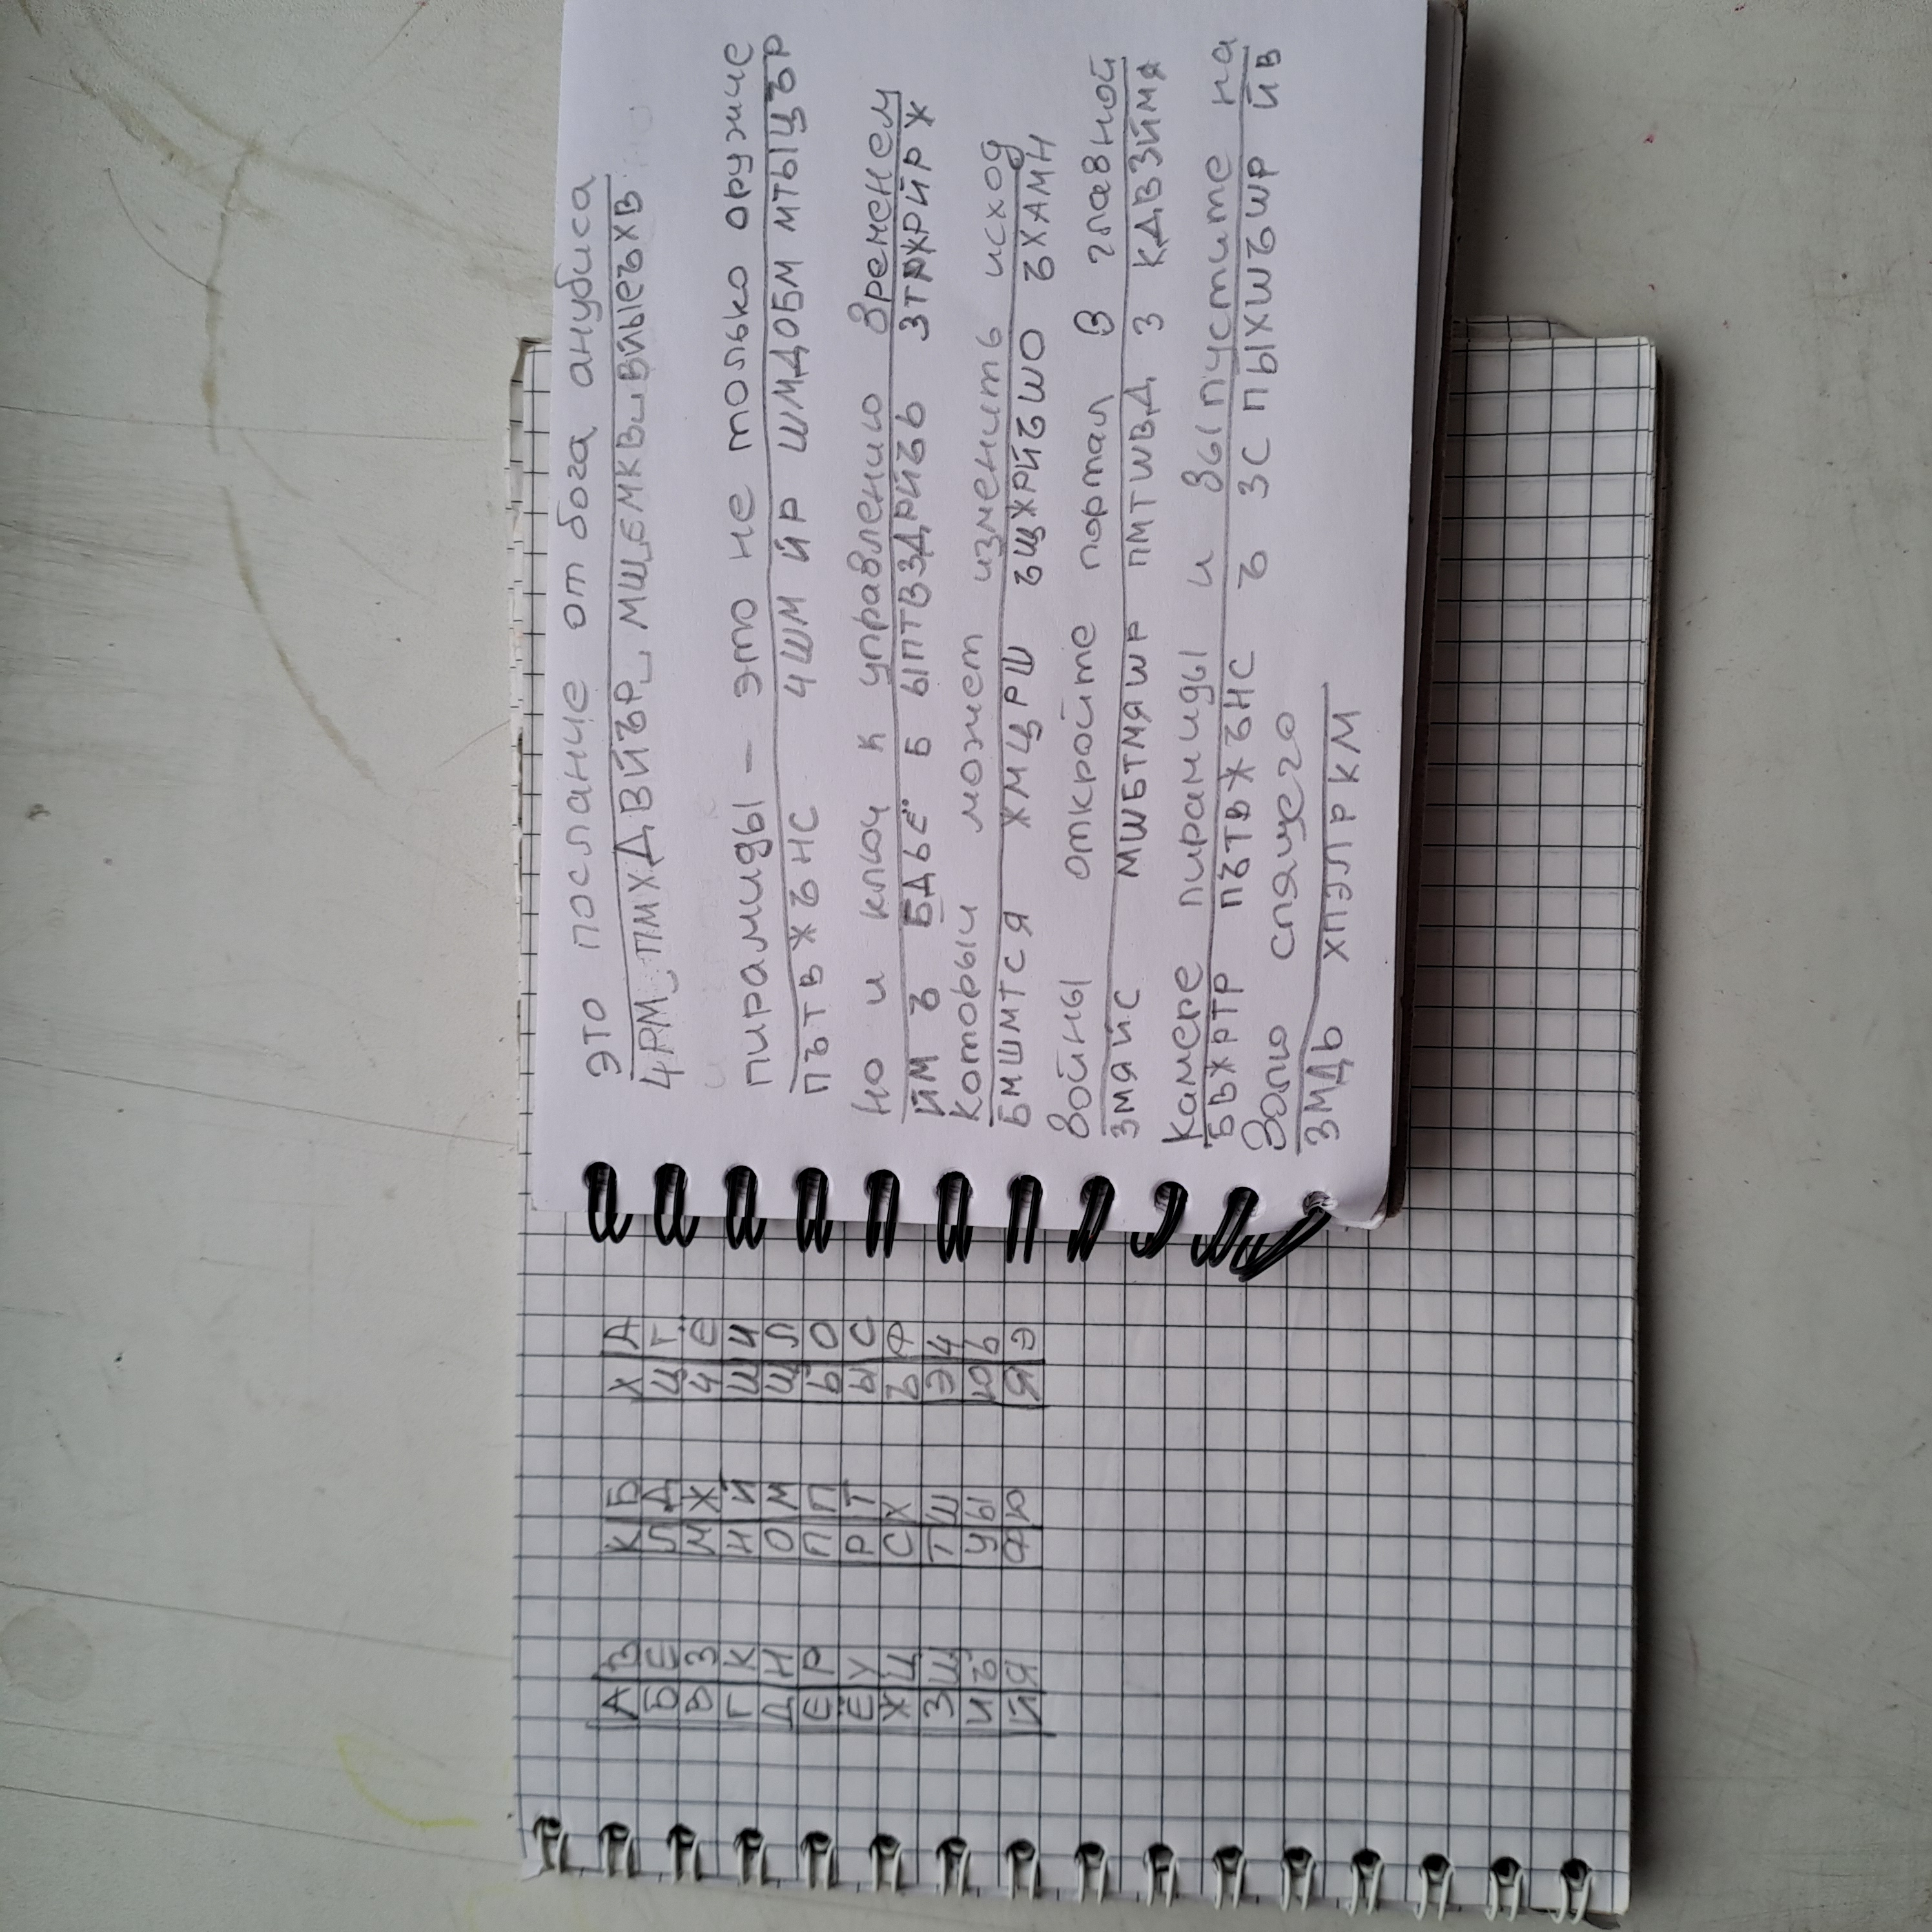 это послание от бога анубиса
ЧРМ ПМХДВЙЪР МШ ЕМКВ ВЙЫЕЪХВ
пирамиды – это не только оружие
ПЪТВЖЪНС ЧШМ ЙР ШМДОБМ МТЫЦЪР
но и ключ к управлению временем
ЙМ Ъ БДЬЁ Б ЫПТВЗДРЙЪЬ ЗТРЖРЙРЖ
который может изменить исход
БМШМТСЯ ЖМЦРШ ЪЩЖРЙЪШО ЪХАМН
войны откройте портал в главной
ЗМЯЙС МШБТМЯШР ПМТШВД З КДВЗЙМЯ
камере пирамиды и выпустите на
БВЖРТР ПЪТВЖЪНС Ъ ЗС ПЫХШЪШР ЙВ
волю спящего
ЗМДЬ ХПЭЛРКМ
А В
Б Е
В З
Г К
Д Н
Е Р
Ё У
Ж Ц
З Щ
И Ъ
Й Я
К Б
Л Д
М Ж
Н Й
О М
П П
Р Т
С Х
Т Ш
У Ы
Ф Ю
Х А
Ц Г
Ч Ё
Ш И
Щ Л
Ь О
Ы С
Ъ Ф
Э Ч
Ю Ь
Я Э